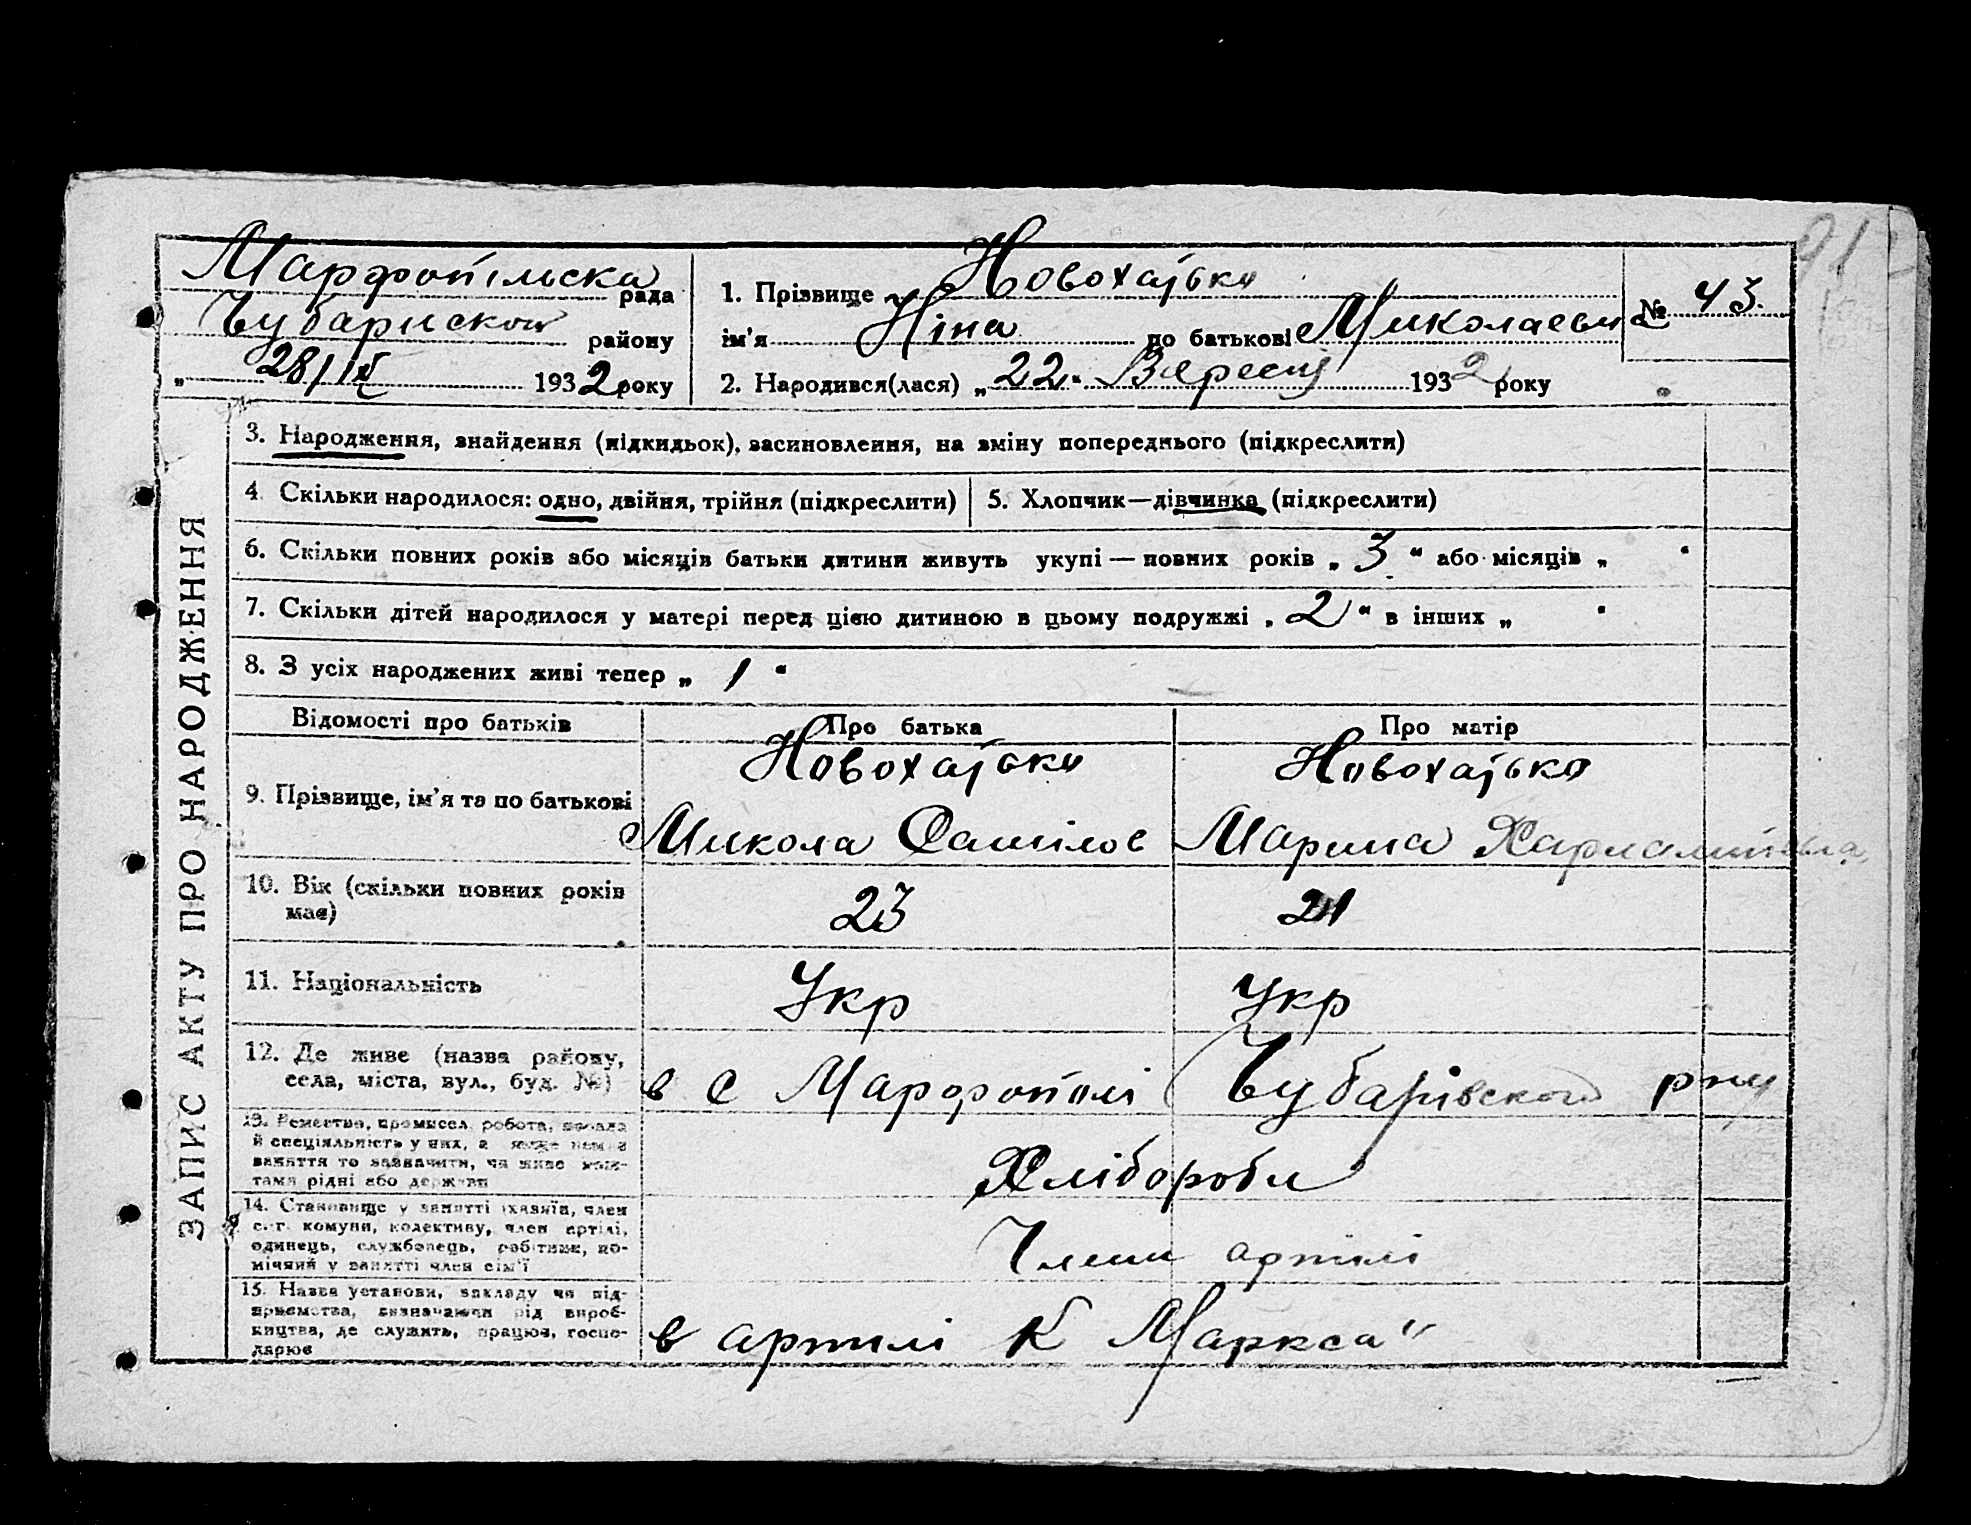 Марфопільска рада
Чубариской району
„ 28/IX 1932 року
1. Прізвище Новохацька
ім'я Ніна по батькові Миколаевна
№ 43
2. Народився(лася) „22" Вересня 1932 року
ЗАПИС АКТУ ПРО НАРОДЖЕННЯ
3. Народження, знайдення (підкидьок), засиновлення, на зміну попереднього (підкреслити)
4. Скільки народилося: одно, двійня, трійня (підкреслити)
5. Хлопчик—дівчинка (підкреслити)
6. Скільки повних років або місяців батьки дитини живуть укупі — повних років „3" або місяців „ "
7. Скільки дітей народилося у матері перед цією дитиною в цьому подружжі „2" в інших „ "
8. З усіх народжених живі тепер „ 1 "
Відомості про батьків Про батька Про матір
9. Прізвище, ім'я та по батькові
Новохацьки Новохацька
Микола Данілов Марина
10. Вік (скільки повних років має)
23 21
11. Національність
Укр Укр
12. Де живе (назва району, села, міста, вул., буд. №)
в с Марфополі Чубарівского рну
13. Ремество, промисел, робота, посада
й спеціяльність у них, а якще немає
заняття то зазначити, чи живе кош-
тами рідні або держави
Хлібороби
14. Становище у занятті (хазяїн, член
с.-г. комуни, колективу, член артілі,
одинець, службовець, робітник, по-
мічний у занятті член сім'ї
Члени артілі
15. Назва установи, закладу чи під-
приємства, визначаючи рід вироб-
ництва, де служить, працює, госпо-
дарює
в артілі К Маркса"